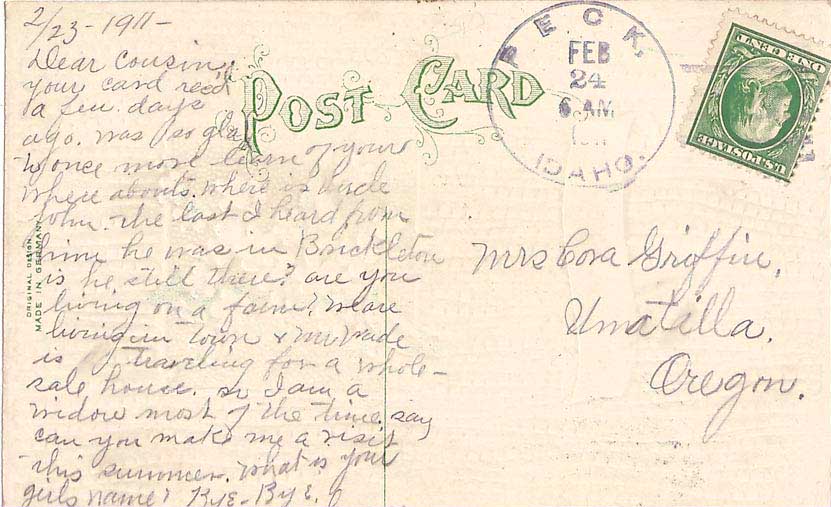 2/23-1911-
Dear Cousin,
your card recd
a few days
ago. was so glad
to once more learn of your
where abouts. where is Uncle
John. the last I heard from
him he was in Brickleton
is he still there? are you
living on a farm? We are
living in town & Mr Wade
is traveling for a whole-
sale house. so I am a
widow most of the time. say
can you make me a visit
this summer. What is your
girls name? Bye-Bye.
POST CARD
ORIGINAL DESIGN
MADE IN GERMANY
PECK,
FEB
24
6 AM
IDAHO.
U.S. POSTAGE
ONE CENT
Mrs Cora Griffin,
Umatilla,
Oregon.